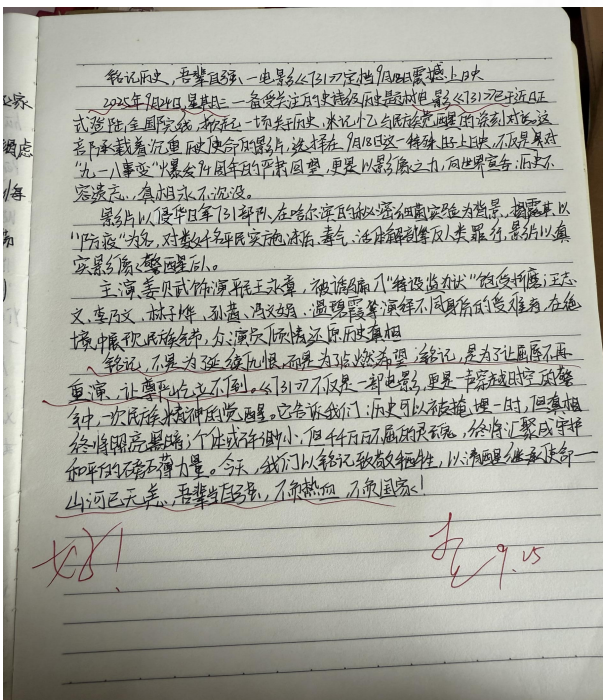 铭记历史,吾辈自强、—电影《731》定档9月18日震撼上映
2025年9月24日,星期三一备受关注的史诗级历史题材电影《731》已于近日正
式登陆全国院线,掀起一场关于历史,米记忆与民族觉醒的深刻对话。这
部承载着沉重历史使命的影片,选择在9月18日这一特殊日子上映,不仅是对
“九一八事变”爆发94周年的严肃回望,更是以影像之力,向世界宣告:历史不
容遗忘,真相永不沉没。
影片以侵华日军731部队在哈尔滨的秘密细菌实验为背景,揭露其以
“防疫”为名,对数千名平民实施冻伤、毒气、活体解剖等反人类罪行,影片以真
实影像警醒后人。
主演姜武饰演平民王永章,被诱骗入“特设监狱”饱受折磨;王志
文、李乃文、林子烨、孙茜、冯文娟、温碧霞等演绎不同身份的受难者,在绝
境中展现民族气节,众演员倾情还原历史真相
铭记,不是为了延续仇恨,而是为了点燃希望;铭记,是为了让屈辱不再
重演,让尊严屹立不倒。《731》不仅是一部电影,更是一声穿越时空的警
钟,一次民族精神的觉醒。它告诉我们:历史可以被掩埋一时,但真相
终将照亮黑暗;个体或许渺小,但千千万万不屈的灵魂,终将汇聚成守护
和平的磅礴力量。今天,我们以铭记致敬牺牲,以清醒继承使命—
山河已无恙,吾辈当自强,不负热血,不负国家!
好!
9.25
家
虑
每